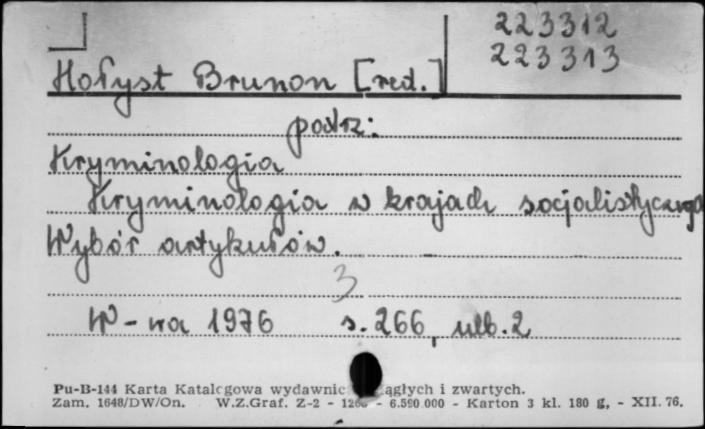 223312
223313
Hołyst Brunon [red.]
podrz:
Kryminologia
Kryminologia w krajach socjalistycznych
Wybór artykułów.
3
W-wa 1976 s. 266, nlb. 2
Pu-B-144 Karta Katalogowa wydawnic ągłych i zwartych.
Zam. 1648/DW/On. W.Z.Graf. Z-2 - 6.590.000 - Karton 3 kl. 180 g, - XII. 76.